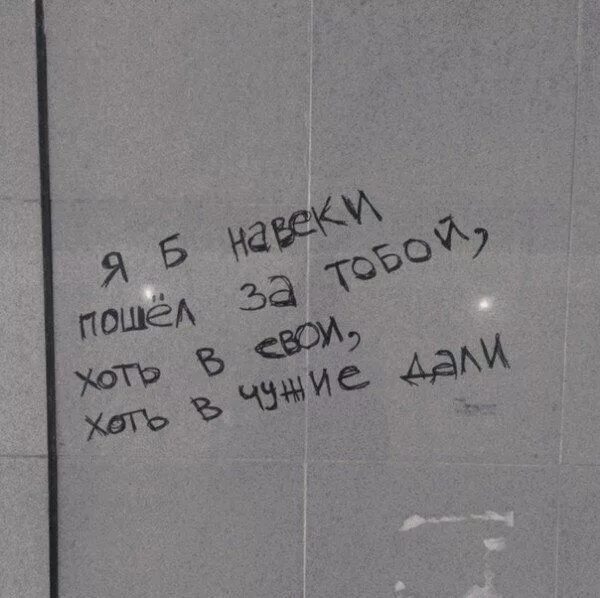 я б навеки
пошёл за тобой,
хоть в свои,
хоть в чужие дали